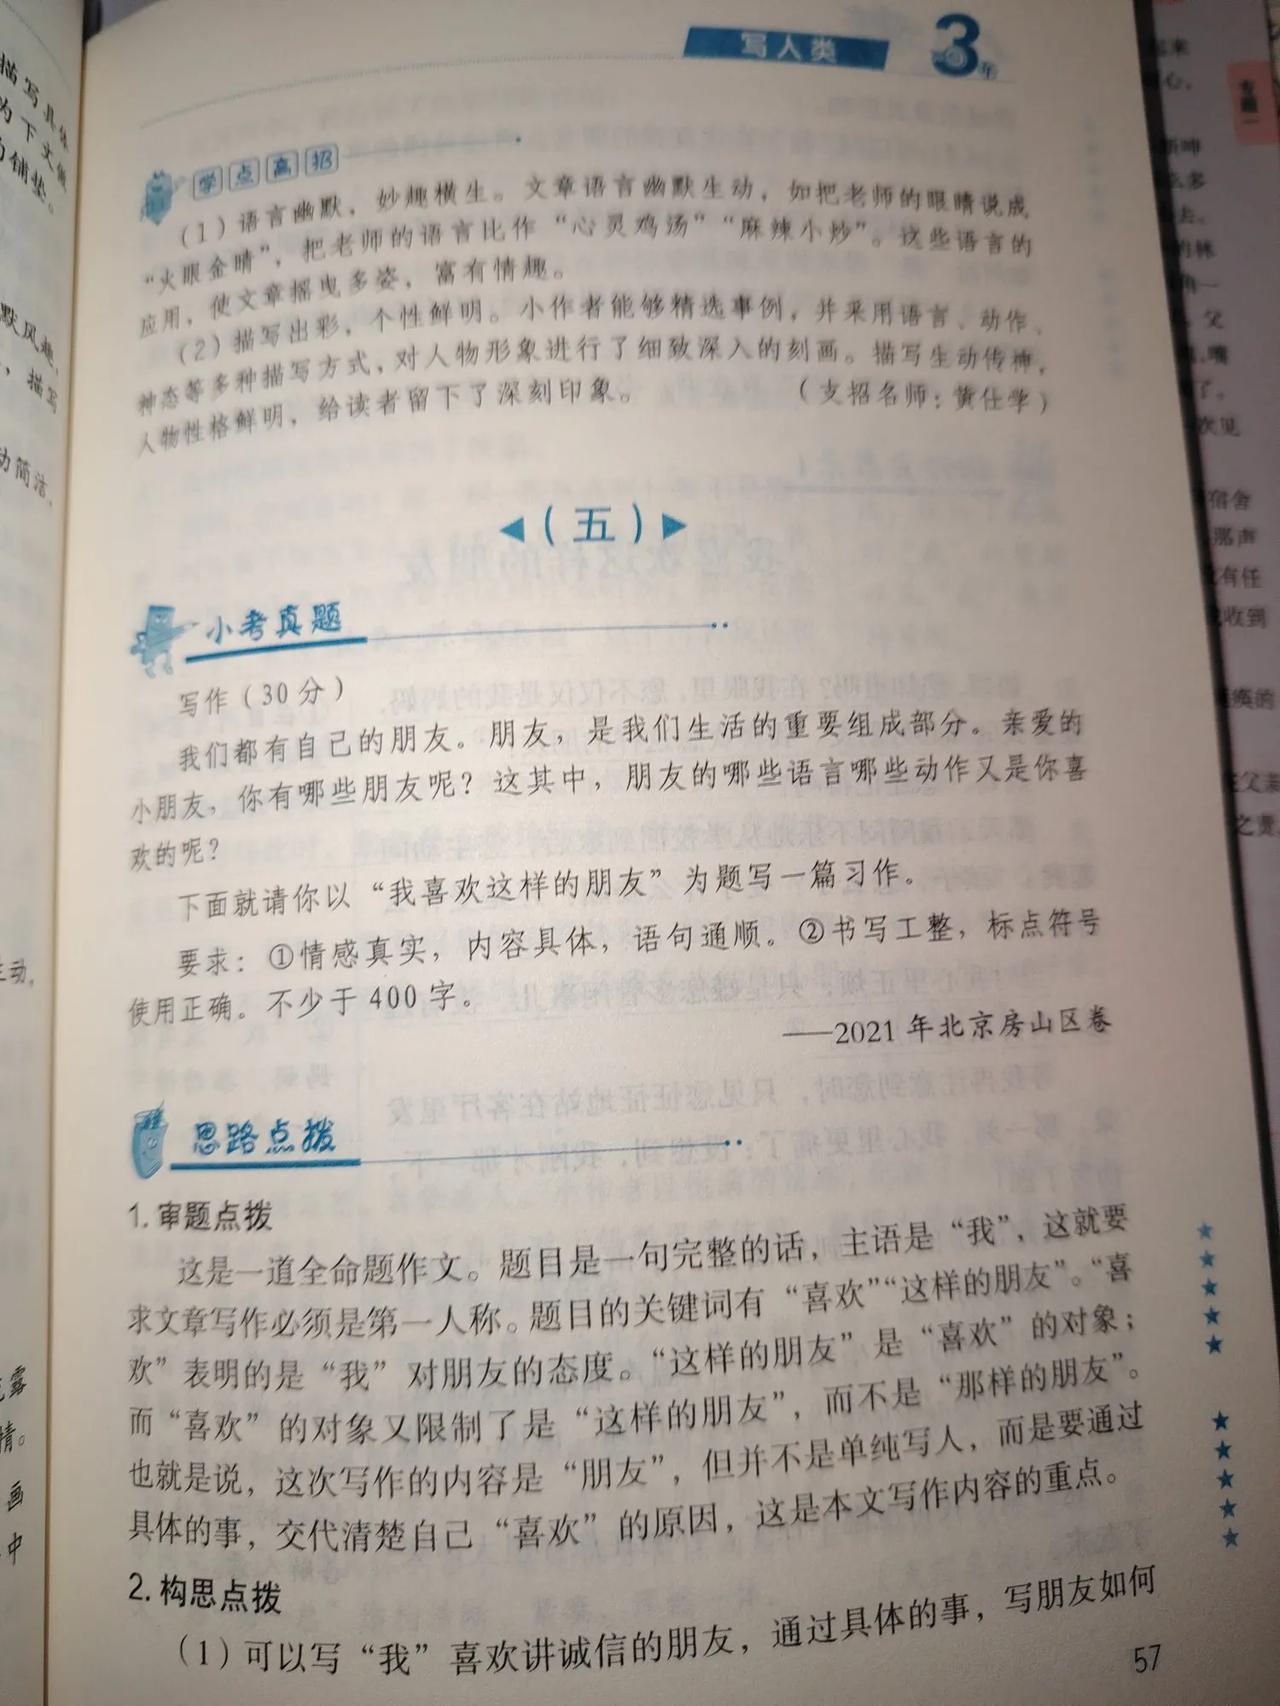 写人类
3年
学点高招
（1）语言幽默，妙趣横生。文章语言幽默生动，如把老师的眼睛说成
“火眼金睛”，把老师的语言比作“心灵鸡汤”“麻辣小炒”。这些语言的
应用，使文章摇曳多姿，富有情趣。
（2）描写出彩，个性鲜明。小作者能够精选事例，并采用语言、动作、
神态等多种描写方式，对人物形象进行了细致深入的刻画。描写生动传神，
人物性格鲜明，给读者留下了深刻印象。（支招名师：黄仕学）
（五）
小考真题
写作（30分）
我们都有自己的朋友。朋友，是我们生活的重要组成部分。亲爱的
小朋友，你有哪些朋友呢？这其中，朋友的哪些语言哪些动作又是你喜
欢的呢？
下面就请你以“我喜欢这样的朋友”为题写一篇习作。
要求：①情感真实，内容具体，语句通顺。②书写工整，标点符号
使用正确。不少于400字。
——2021年北京房山区卷
思路点拨
1.审题点拨
这是一道全命题作文。题目是一句完整的话，主语是“我”，这就要
求文章写作必须是第一人称。题目的关键词有“喜欢”“这样的朋友”。“喜
欢”表明的是“我”对朋友的态度。“这样的朋友”是“喜欢”的对象；
而“喜欢”的对象又限制了是“这样的朋友”，而不是“那样的朋友”。
也就是说，这次写作的内容是“朋友”，但并不是单纯写人，而是要通过
具体的事，交代清楚自己“喜欢”的原因，这是本文写作内容的重点。
2.构思点拨
（1）可以写“我”喜欢讲诚信的朋友，通过具体的事，写朋友如何
57